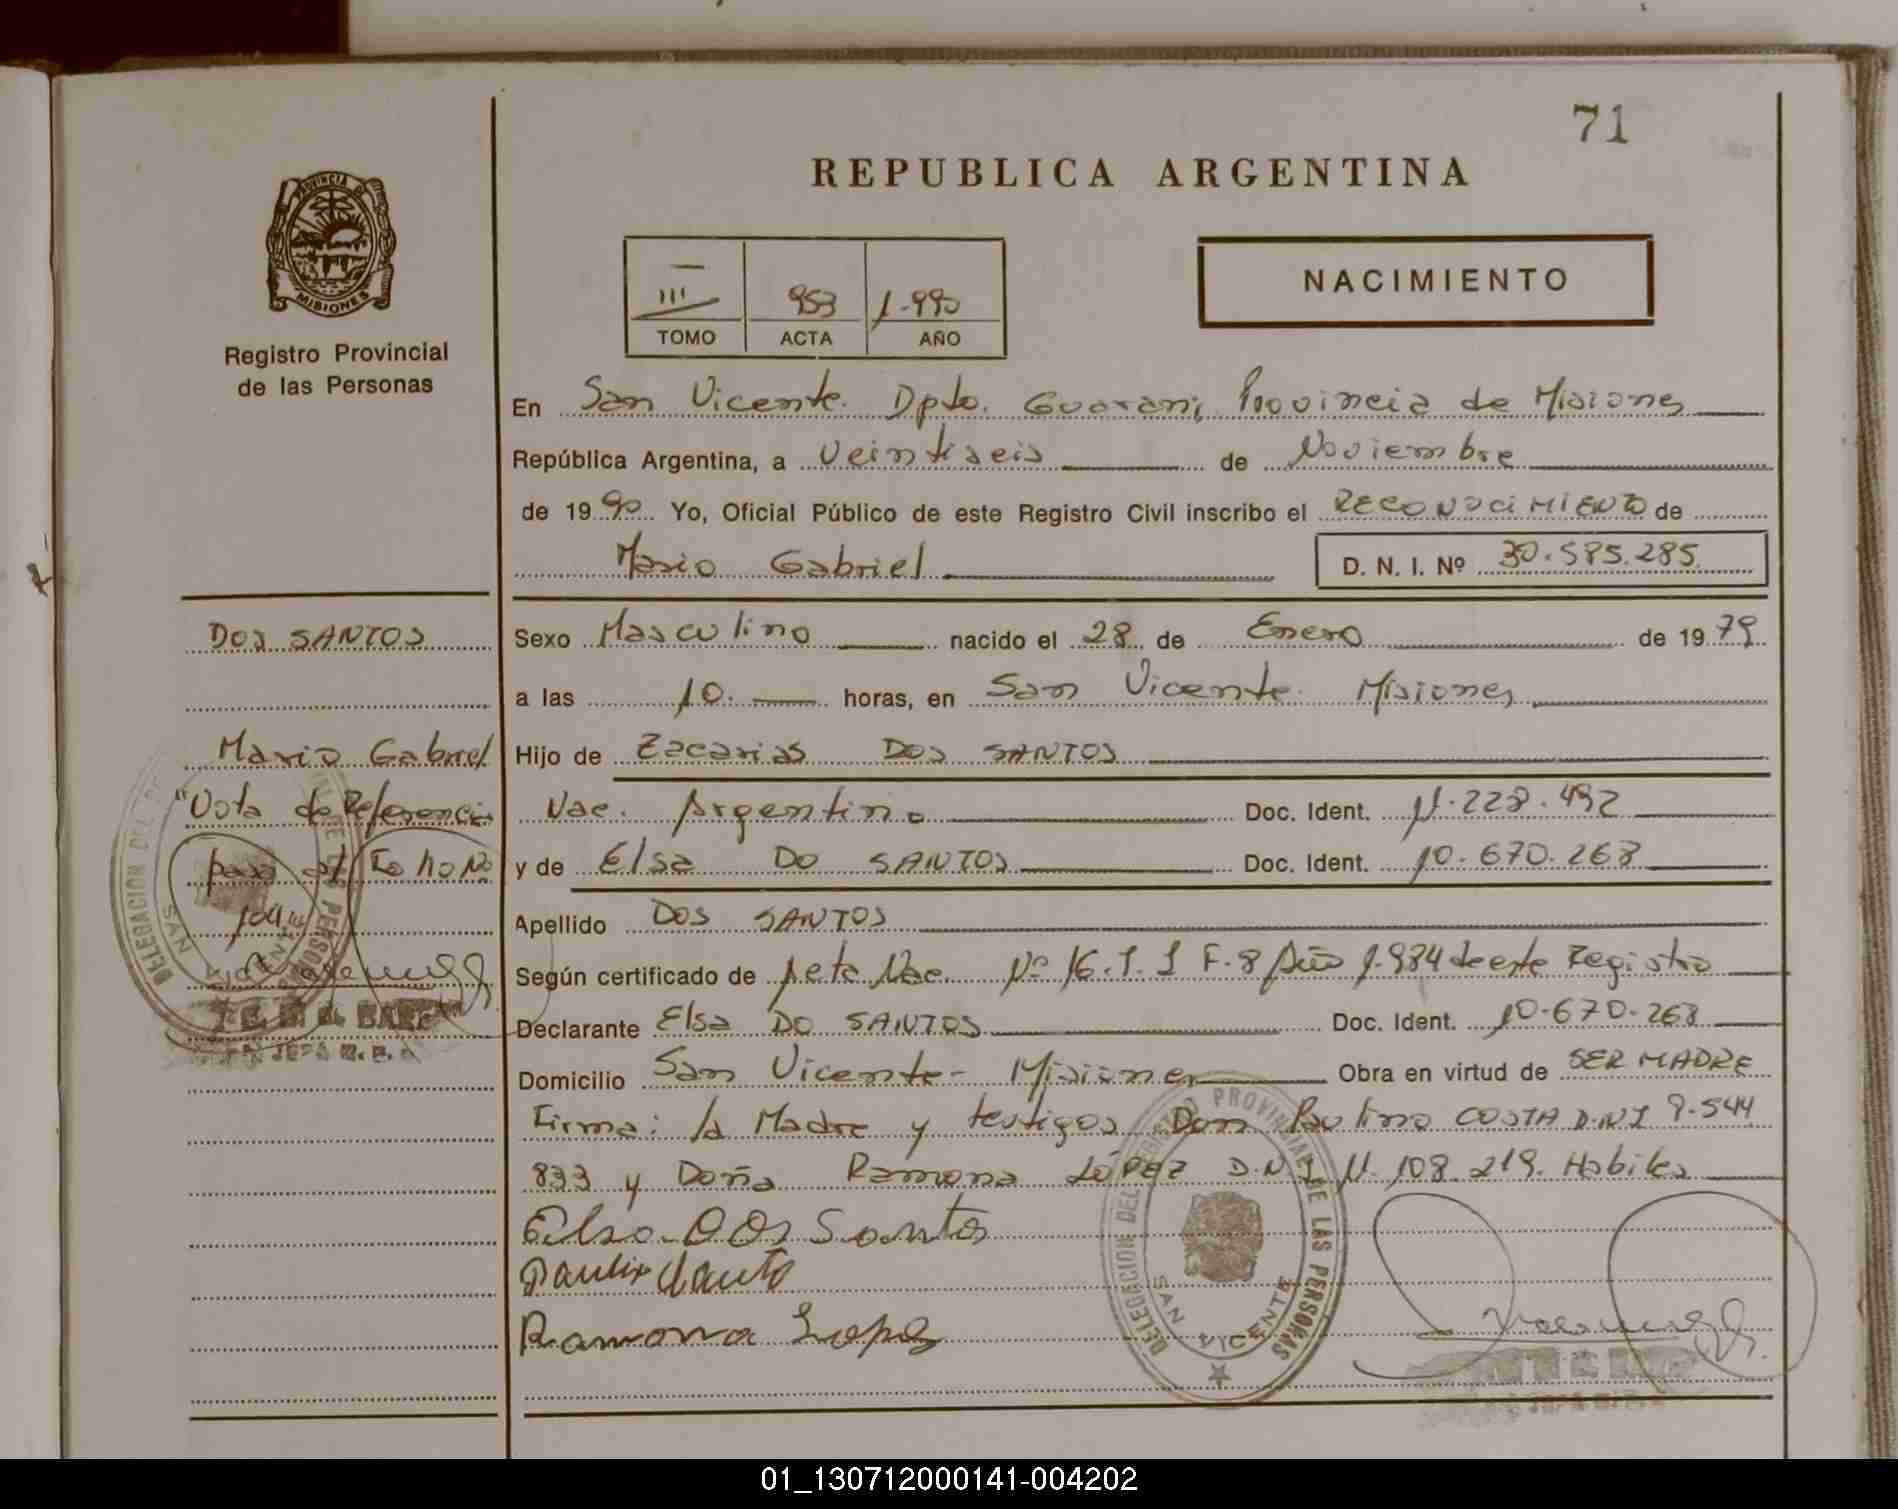 71
REPUBLICA ARGENTINA
PROVINCIA DE
MISIONES
Registro Provincial
de las Personas
III 953 1.990
TOMO ACTA AÑO
NACIMIENTO
En San Vicente. Dpto. Guarani, Provincia de Misiones
República Argentina, a Veintiseis de Noviembre
de 1990 Yo, Oficial Público de este Registro Civil inscribo el RECONOCIMIENTO de
Mario Gabriel D. N. I. Nº 30.585.285
DOS SANTOS
Sexo Masculino nacido el 28 de Enero de 1979
a las 10. horas, en San Vicente. Misiones
Mario Gabriel
Hijo de Zacarias DOS SANTOS
"Nota de Referencia
Nac. Argentino Doc. Ident. 11.228.492
pasa al To No
y de Elsa DO SANTOS Doc. Ident. 10.670.268
Apellido DOS SANTOS
Según certificado de Acta Nac. Nº 16.T.1 F.8 Año 1.984 de este Registro
Declarante Elsa DO SANTOS Doc. Ident. 10.670.268
Domicilio San Vicente - Misiones Obra en virtud de SER MADRE
Firma: la Madre y testigos Don Paulino COSTA D.N.I 7.544
833 y Doña Ramona LÓPEZ D.N.I 11.108.219. Habiles
Elsa DOS Santos
Ramona Lopez
DELEGACION DEL REGISTRO PROVINCIAL DE LAS PERSONAS
SAN VICENTE
01_130712000141-004202